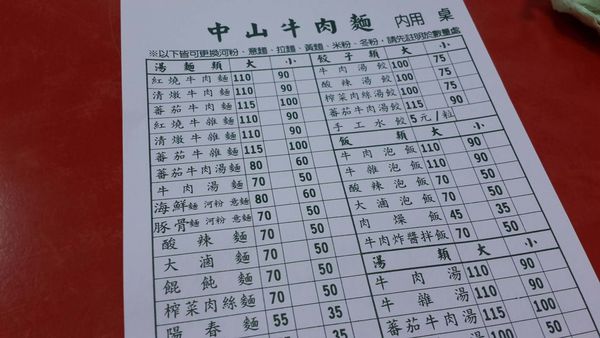 中山牛肉麵 內用 桌
※以下皆可更換河粉、意麵、拉麵、黃麵、米粉、冬粉，請先註明於數量處
湯麵類 大 小
紅燒牛肉麵 110 90
清燉牛肉麵 110 90
番茄牛肉麵 115 100
紅燒牛雜麵 110 90
清燉牛雜麵 110 90
番茄牛雜麵 115 100
番茄牛肉湯麵 80 60
牛肉湯麵 70 50
海鮮麵 河粉 意麵 80 60
豚骨麵 河粉 意麵 70 50
酸辣麵 70 50
大滷麵 70 50
餛飩麵 70 50
榨菜肉絲麵 70 50
陽春麵 55 35
餃子類 大 小
牛肉湯餃 100 75
酸辣湯餃 100 75
榨菜肉絲湯餃 100 75
番茄牛肉湯餃 115 90
手工水餃 5元/粒
飯類 大 小
牛肉泡飯 110 90
牛雜泡飯 110 90
酸辣泡飯 70 50
大滷泡飯 70 50
肉燥飯 45 35
牛肉炸醬拌飯 70 50
湯類 大 小
牛肉湯 110 90
牛雜湯 110 90
番茄牛肉湯 115 100